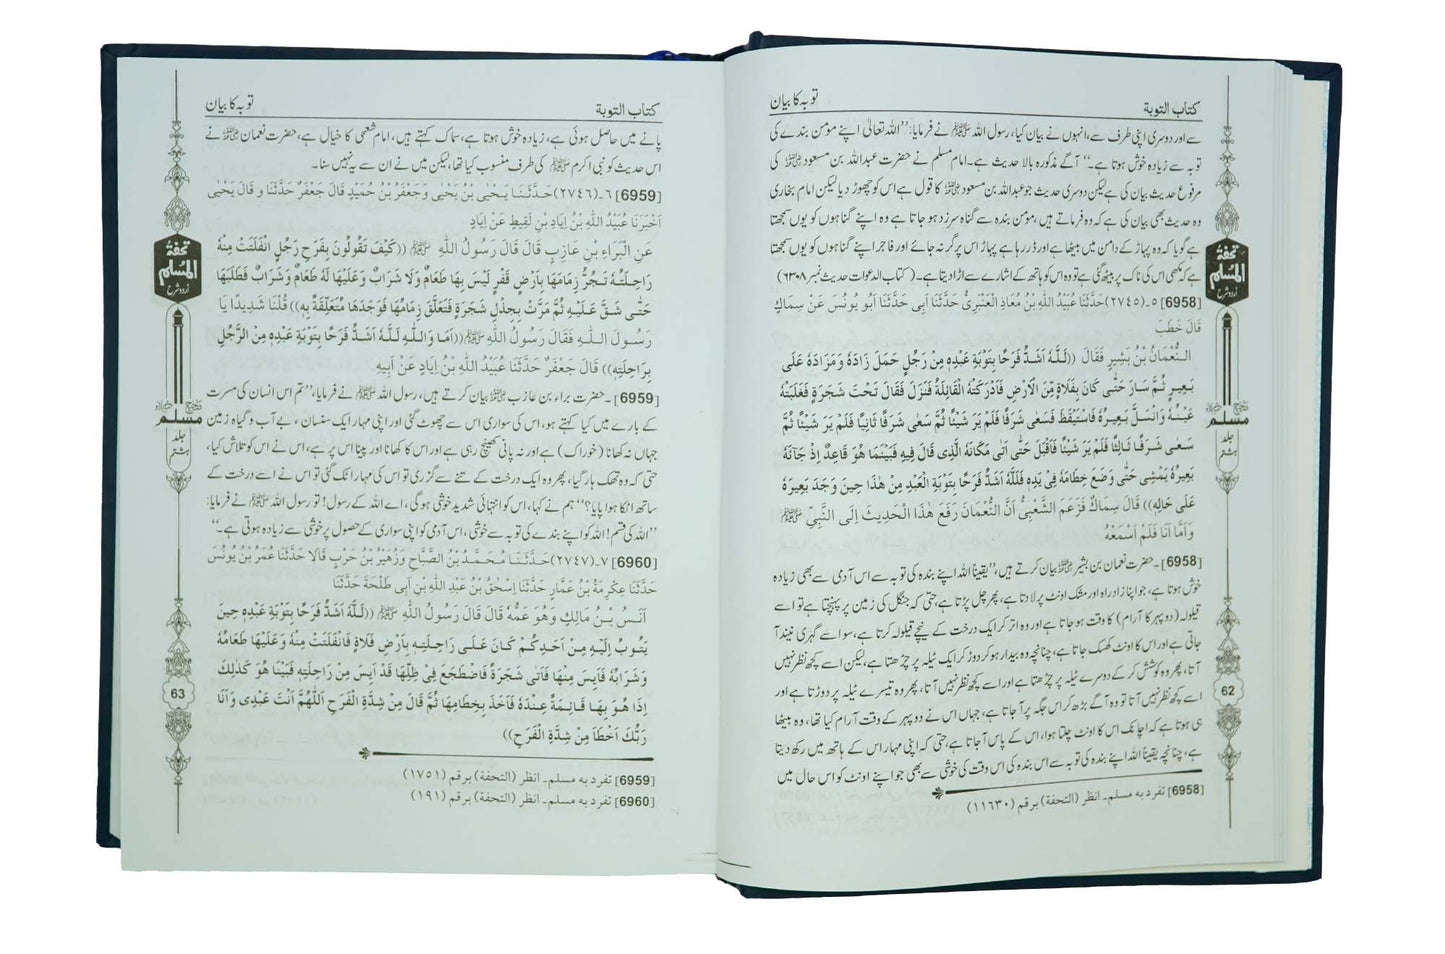 كتاب التوبة
توبہ کا بیان
سے اور دوسری اپنی طرف سے، انہوں نے بیان کیا، رسول اللہ ﷺ نے فرمایا: ’’اللہ تعالیٰ اپنے مومن بندے کی
توبہ سے زیادہ خوش ہوتا ہے۔‘‘ آگے مذکورہ بالا حدیث ہے۔ امام مسلم نے حضرت عبداللہ بن مسعود رضی اللہ عنہ کی
مرفوع حدیث بیان کی ہے لیکن دوسری حدیث جو عبداللہ بن مسعود رضی اللہ عنہ کا قول ہے اس کو چھوڑ دیا لیکن امام بخاری
وہ حدیث بھی بیان کی ہے کہ وہ فرماتے ہیں، مؤمن بندہ سے گناہ سرزد ہو جاتا ہے وہ اپنے گناہوں کو یوں سمجھتا
ہے گویا کہ وہ پہاڑ کے دامن میں بیٹھا ہے اور ڈر رہا ہے پہاڑ اس پر گر نہ جائے اور فاجر اپنے گناہوں کو یوں سمجھتا
ہے کہ مکھی اس کی ناک پر بیٹھ گئی ہے تو وہ اس کو ہاتھ کے اشارے سے اڑا دیتا ہے۔ (کتاب الدعوات حدیث نمبر ۶۳۰۸)
[6958] ٥۔(٢٧٤٥) حَدَّثَنَا عُبَيْدُ اللهِ بْنُ مُعَاذِ الْعَنْبَرِيُّ حَدَّثَنَا أَبِي حَدَّثَنَا أَبُو يُونُسَ عَنْ سِمَاكٍ
قَالَ خَطَبَ
النُّعْمَانُ بْنُ بَشِيرٍ فَقَالَ ((لَلّٰهُ اَشَدُّ فَرَحًا بِتَوْبَةِ عَبْدِهٖ مِنْ رَجُلٍ حَمَلَ زَادَهٗ وَمَزَادَهٗ عَلٰى
بَعِيرٍ ثُمَّ سَارَ حَتّٰى كَانَ بِفَلَاةٍ مِّنَ الْاَرْضِ فَاَدْرَكَتْهُ الْقَائِلَةُ فَنَزَلَ فَقَالَ تَحْتَ شَجَرَةٍ فَغَلَبَتْهُ
عَيْنُهٗ وَانْسَلَّ بَعِيرُهٗ فَاسْتَيْقَظَ فَسَعٰى شَرَفًا فَلَمْ يَرَ شَيْئًا ثُمَّ سَعٰى شَرَفًا ثَانِيًا فَلَمْ يَرَ شَيْئًا ثُمَّ
سَعٰى شَرَفًا ثَالِثًا فَلَمْ يَرَ شَيْئًا فَاَقْبَلَ حَتّٰى اَتٰى مَكَانَهُ الَّذِى قَالَ فِيهِ فَبَيْنَمَا هُوَ قَاعِدٌ اِذْ جَائَهٗ
بَعِيرُهٗ يَمْشِى حَتّٰى وَضَعَ خِطَامَهٗ فِى يَدِهٖ فَلَلّٰهُ اَشَدُّ فَرَحًا بِتَوْبَةِ الْعَبْدِ مِنْ هٰذَا حِينَ وَجَدَ بَعِيرَهٗ
عَلٰى حَالِهٖ)) قَالَ سِمَاكٌ فَزَعَمَ الشَّعْبِىُّ اَنَّ النُّعْمَانَ رَفَعَ هٰذَا الْحَدِيثَ اِلَى النَّبِىِّ ﷺ
وَاَمَّا اَنَا فَلَمْ اَسْمَعْهُ
[6958]۔ حضرت نعمان بن بشیر رضی اللہ عنہ بیان کرتے ہیں، ’’یقیناً اللہ اپنے بندہ کی توبہ سے اس آدمی سے بھی زیادہ
خوش ہوتا ہے، جو اپنا زادراہ اور مشک اونٹ پر لادتا ہے، پھر چل پڑتا ہے، حتی کہ جنگل کی زمین پر پہنچتا ہے تو اسے
قیلولہ (دوپہر کا آرام) کا وقت ہو جاتا ہے اور وہ اتر کر ایک درخت کے نیچے قیلولہ کرتا ہے، سو اسے گہری نیند آ
جاتی ہے اور اس کا اونٹ کھسک جاتا ہے، چنانچہ وہ بیدار ہو کر دوڑ کر ایک ٹیلہ پر چڑھتا ہے، لیکن اسے کچھ نظر نہیں
آتا، پھر وہ کوشش کر کے دوسرے ٹیلہ پر چڑھتا ہے اور اسے کچھ نظر نہیں آتا، پھر وہ تیسرے ٹیلہ پر دوڑتا ہے اور
اسے کچھ نظر نہیں آتا تو وہ آگے بڑھ کر اس جگہ پر آ جاتا ہے، جہاں اس نے دوپہر کے وقت آرام کیا تھا، وہ بیٹھا
ہی ہوتا ہے کہ اچانک اس کا اونٹ چلتا ہوا، اس کے پاس آ جاتا ہے، حتی کہ اپنی مہار اس کے ہاتھ میں رکھ دیتا
ہے، چنانچہ یقیناً اللہ اپنے بندہ کی توبہ سے اس بندہ کی اس وقت کی خوشی سے بھی جو اپنے اونٹ کو اس حال میں
[6958] تفرد به مسلم۔ انظر (التحفة) برقم (١١٦٣٠)
تحفۃ
المسلم
اردو شرح
صحیح
مسلم
جلد
ہشتم
62
كتاب التوبة
توبہ کا بیان
پانے میں حاصل ہوئی ہے، زیادہ خوش ہوتا ہے، سماک کہتے ہیں، امام شعبی کا خیال ہے، حضرت نعمان رضی اللہ عنہ نے
اس حدیث کو نبی اکرم ﷺ کی طرف منسوب کیا تھا، لیکن میں نے ان سے یہ نہیں سنا۔
[6959] ٦۔(٢٧٤٦) حَدَّثَنَا يَحْيَى بْنُ يَحْيٰى وَجَعْفَرُ بْنُ حُمَيْدٍ قَالَ جَعْفَرٌ حَدَّثَنَا و قَالَ يَحْيٰى
اَخْبَرَنَا عُبَيْدُ اللّٰهِ بْنُ اِيَادِ بْنِ لَقِيطٍ عَنْ اِيَادٍ
عَنِ الْبَرَاءِ بْنِ عَازِبٍ قَالَ قَالَ رَسُولُ اللّٰهِ ﷺ ((كَيْفَ تَقُولُونَ بِفَرَحِ رَجُلٍ انْفَلَتَتْ مِنْهُ
رَاحِلَتُهٗ تَجُرُّ زِمَامَهَا بِاَرْضٍ قَفْرٍ لَيْسَ بِهَا طَعَامٌ وَلَا شَرَابٌ وَعَلَيْهَا لَهٗ طَعَامٌ وَشَرَابٌ فَطَلَبَهَا
حَتّٰى شَقَّ عَلَيْهِ ثُمَّ مَرَّتْ بِجِذْلِ شَجَرَةٍ فَتَعَلَّقَ زِمَامُهَا فَوَجَدَهَا مُتَعَلِّقَةً بِهٖ)) قُلْنَا شَدِيدًا يَا
رَسُولَ اللّٰهِ فَقَالَ رَسُولُ اللّٰهِ ﷺ ((اَمَا وَاللّٰهِ لَلّٰهُ اَشَدُّ فَرَحًا بِتَوْبَةِ عَبْدِهٖ مِنَ الرَّجُلِ
بِرَاحِلَتِهٖ)) قَالَ جَعْفَرٌ حَدَّثَنَا عُبَيْدُ اللّٰهِ بْنُ اِيَادٍ عَنْ اَبِيهِ
[6959]۔ حضرت براء بن عازب رضی اللہ عنہ بیان کرتے ہیں، رسول اللہ ﷺ نے فرمایا، ’’تم اس انسان کی مسرت
کے بارے میں کیا کہتے ہو، اس کی سواری اس سے چھوٹ گئی اور اپنی مہار ایک سنسان، بے آب و گیاہ زمین
جہاں نہ کھانا (خوراک) ہے اور نہ پانی کھینچ رہی ہے اور اس کا کھانا اور پینا اس پر ہے، اس نے اس کو تلاش کیا،
حتی کہ وہ تھک ہار گیا، پھر وہ ایک درخت کے تنے سے گزری تو اس کی مہار اٹک گئی تو اس نے اسے درخت کے
ساتھ اٹکا ہوا پایا؟‘‘ ہم نے کہا، اس کو انتہائی شدید خوشی ہو گی، اے اللہ کے رسول! تو رسول اللہ ﷺ نے فرمایا:
’’اللہ کی قسم! اللہ کو اپنے بندے کی توبہ سے خوشی، اس آدمی کو اپنی سواری کے حصول پر خوشی سے زیادہ ہوتی ہے۔‘‘
[6960] ٧۔(٢٧٤٧) حَدَّثَنَا مُحَمَّدُ بْنُ الصَّبَّاحِ وَزُهَيْرُ بْنُ حَرْبٍ قَالَا حَدَّثَنَا عُمَرُ بْنُ يُونُسَ
حَدَّثَنَا عِكْرِمَةُ بْنُ عَمَّارٍ حَدَّثَنَا اِسْحٰقُ بْنُ عَبْدِ اللّٰهِ بْنِ اَبِى طَلْحَةَ حَدَّثَنَا
اَنَسُ بْنُ مَالِكٍ وَهُوَ عَمُّهٗ قَالَ قَالَ رَسُولُ اللّٰهِ ﷺ ((لَلّٰهُ اَشَدُّ فَرَحًا بِتَوْبَةِ عَبْدِهٖ حِينَ
يَتُوبُ اِلَيْهِ مِنْ اَحَدِكُمْ كَانَ عَلٰى رَاحِلَتِهٖ بِاَرْضِ فَلَاةٍ فَانْفَلَتَتْ مِنْهُ وَعَلَيْهَا طَعَامُهٗ
وَشَرَابُهٗ فَاَيِسَ مِنْهَا فَاَتٰى شَجَرَةً فَاضْطَجَعَ فِى ظِلِّهَا قَدْ اَيِسَ مِنْ رَاحِلَتِهٖ فَبَيْنَا هُوَ كَذٰلِكَ
اِذَا هُوَ بِهَا قَائِمَةً عِنْدَهٗ فَاَخَذَ بِخِطَامِهَا ثُمَّ قَالَ مِنْ شِدَّةِ الْفَرَحِ اللّٰهُمَّ اَنْتَ عَبْدِى وَاَنَا
رَبُّكَ اَخْطَأَ مِنْ شِدَّةِ الْفَرَحِ))
[6959] تفرد به مسلم۔ انظر (التحفة) برقم (١٧٥١)
[6960] تفرد به مسلم۔ انظر (التحفة) برقم (١٩١)
تحفۃ
المسلم
اردو شرح
صحیح
مسلم
جلد
ہشتم
63